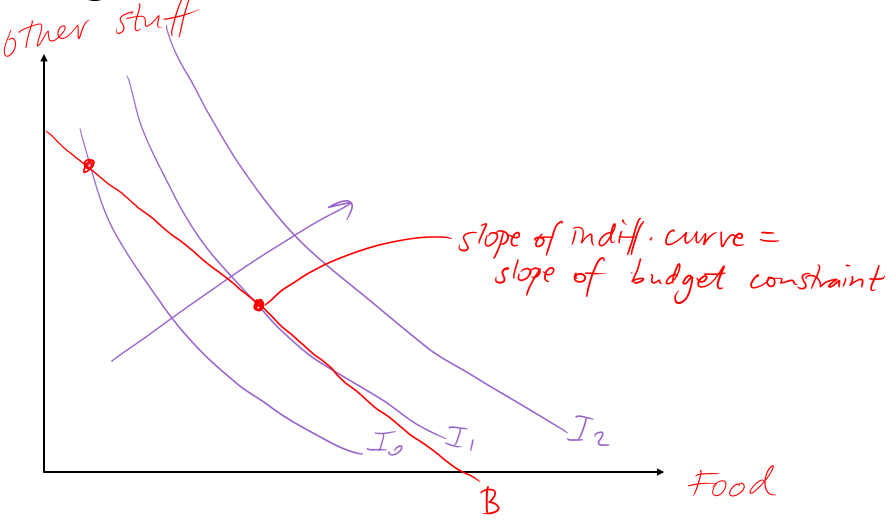 other stuff
slope of indiff. curve =
slope of budget constraint
I₀
I₁
I₂
B
Food